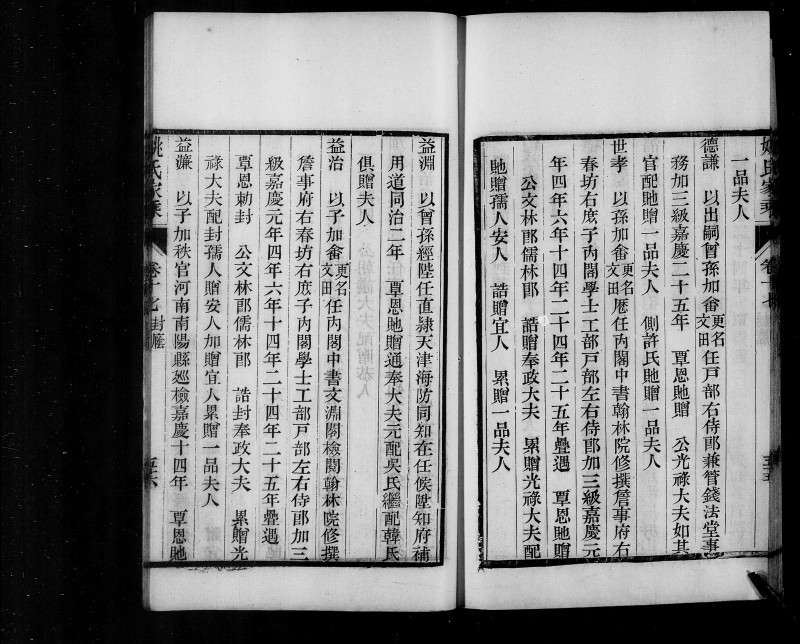 姚氏家乘
卷十七
一品夫人
德謙 以出嗣曾孫加畬更名文田任戶部右侍郎兼管錢法堂事
務加三級嘉慶二十五年 覃恩貤贈 公光祿大夫如其
官配貤贈一品夫人 側許氏貤贈一品夫人
世孝 以孫加畬更名文田歷任內閣中書翰林院修撰詹事府右
春坊右庶子內閣學士工部戸部左右侍郎加三級嘉慶元
年四年六年十四年二十四年二十五年疊遇 覃恩貤贈
公文林郎儒林郎 誥贈奉政大夫 累贈光祿大夫配
貤贈孺人安人 誥贈宜人 累贈一品夫人
益淵 以曾孫經陛任直隸天津海防同知在任候陞知府補
用道同治二年 覃恩貤贈通奉大夫元配吳氏繼配韓氏
俱贈夫人
益治 以子加畬更名文田任內閣中書文淵閣檢閱翰林院修撰
詹事府右春坊右庶子內閣學士工部戸部左右侍郎加三
級嘉慶元年四年六年十四年二十四年二十五年疊遇
覃恩勅封 公文林郎儒林郎 誥封奉政大夫 累贈光
祿大夫配封孺人贈安人加贈宜人累贈一品夫人
益濂 以子加秩官河南南陽縣廵檢嘉慶十四年 覃恩貤
姚氏家乘
卷十七 封廕